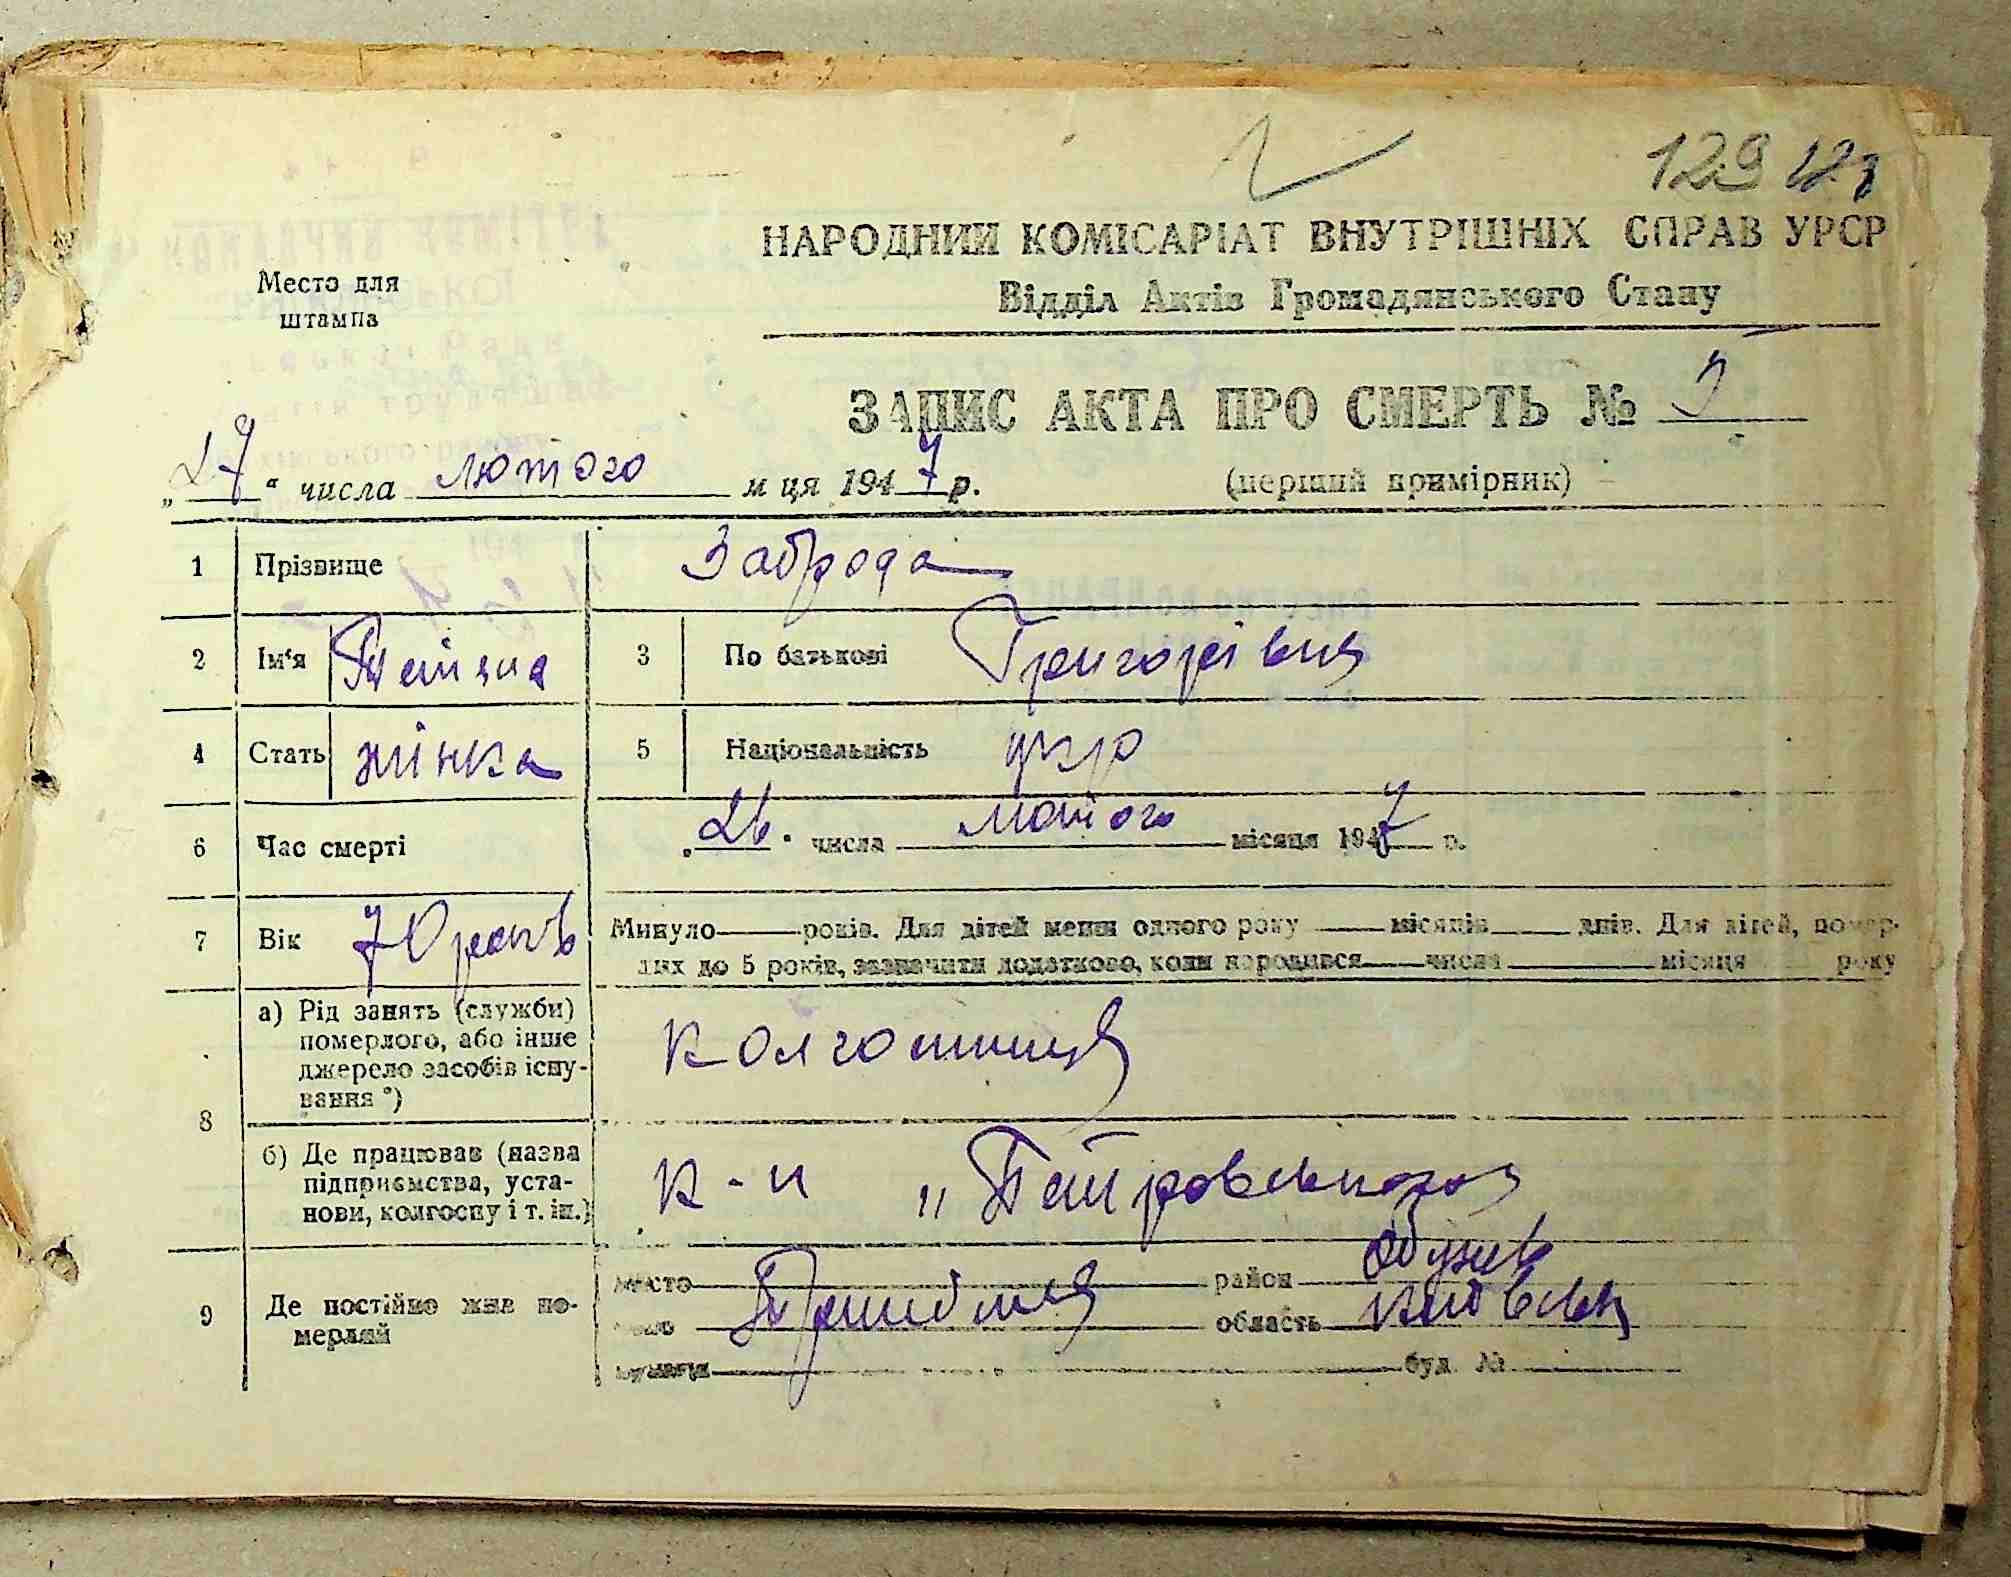 129
НАРОДНИЙ КОМІСАРІАТ ВНУТРІШНІХ СПРАВ УРСР
Відділ Актів Громадянського Стану
Место для
штампа
ЗАПИС АКТА ПРО СМЕРТЬ № 5
„27“ числа лютого м ця 1947 р. (перший примірник)
1 Прізвище Заброда
2 Ім‘я Тетяна 3 По батькові Григорівна
4 Стать жінка 5 Національність укр
6 Час смерті „26“ числа лютого місяця 1947 р.
7 Вік 70 років Минуло років. Для дітей менш одного року місяців днів. Для дітей, помер-
лих до 5 років, зазначити додатково, коли народився числа місяця року
8 а) Рід занять (служби)
померлого, або інше
джерело засобів існу-
вання *)
колгоспниця
б) Де працював (назва
підприємства, уста-
нови, колгоспу і т. ін.)
к-п „Петровського
9 Де постійно жив по-
мерлий
место район Обухів
село область Київська
вулиця буд. №